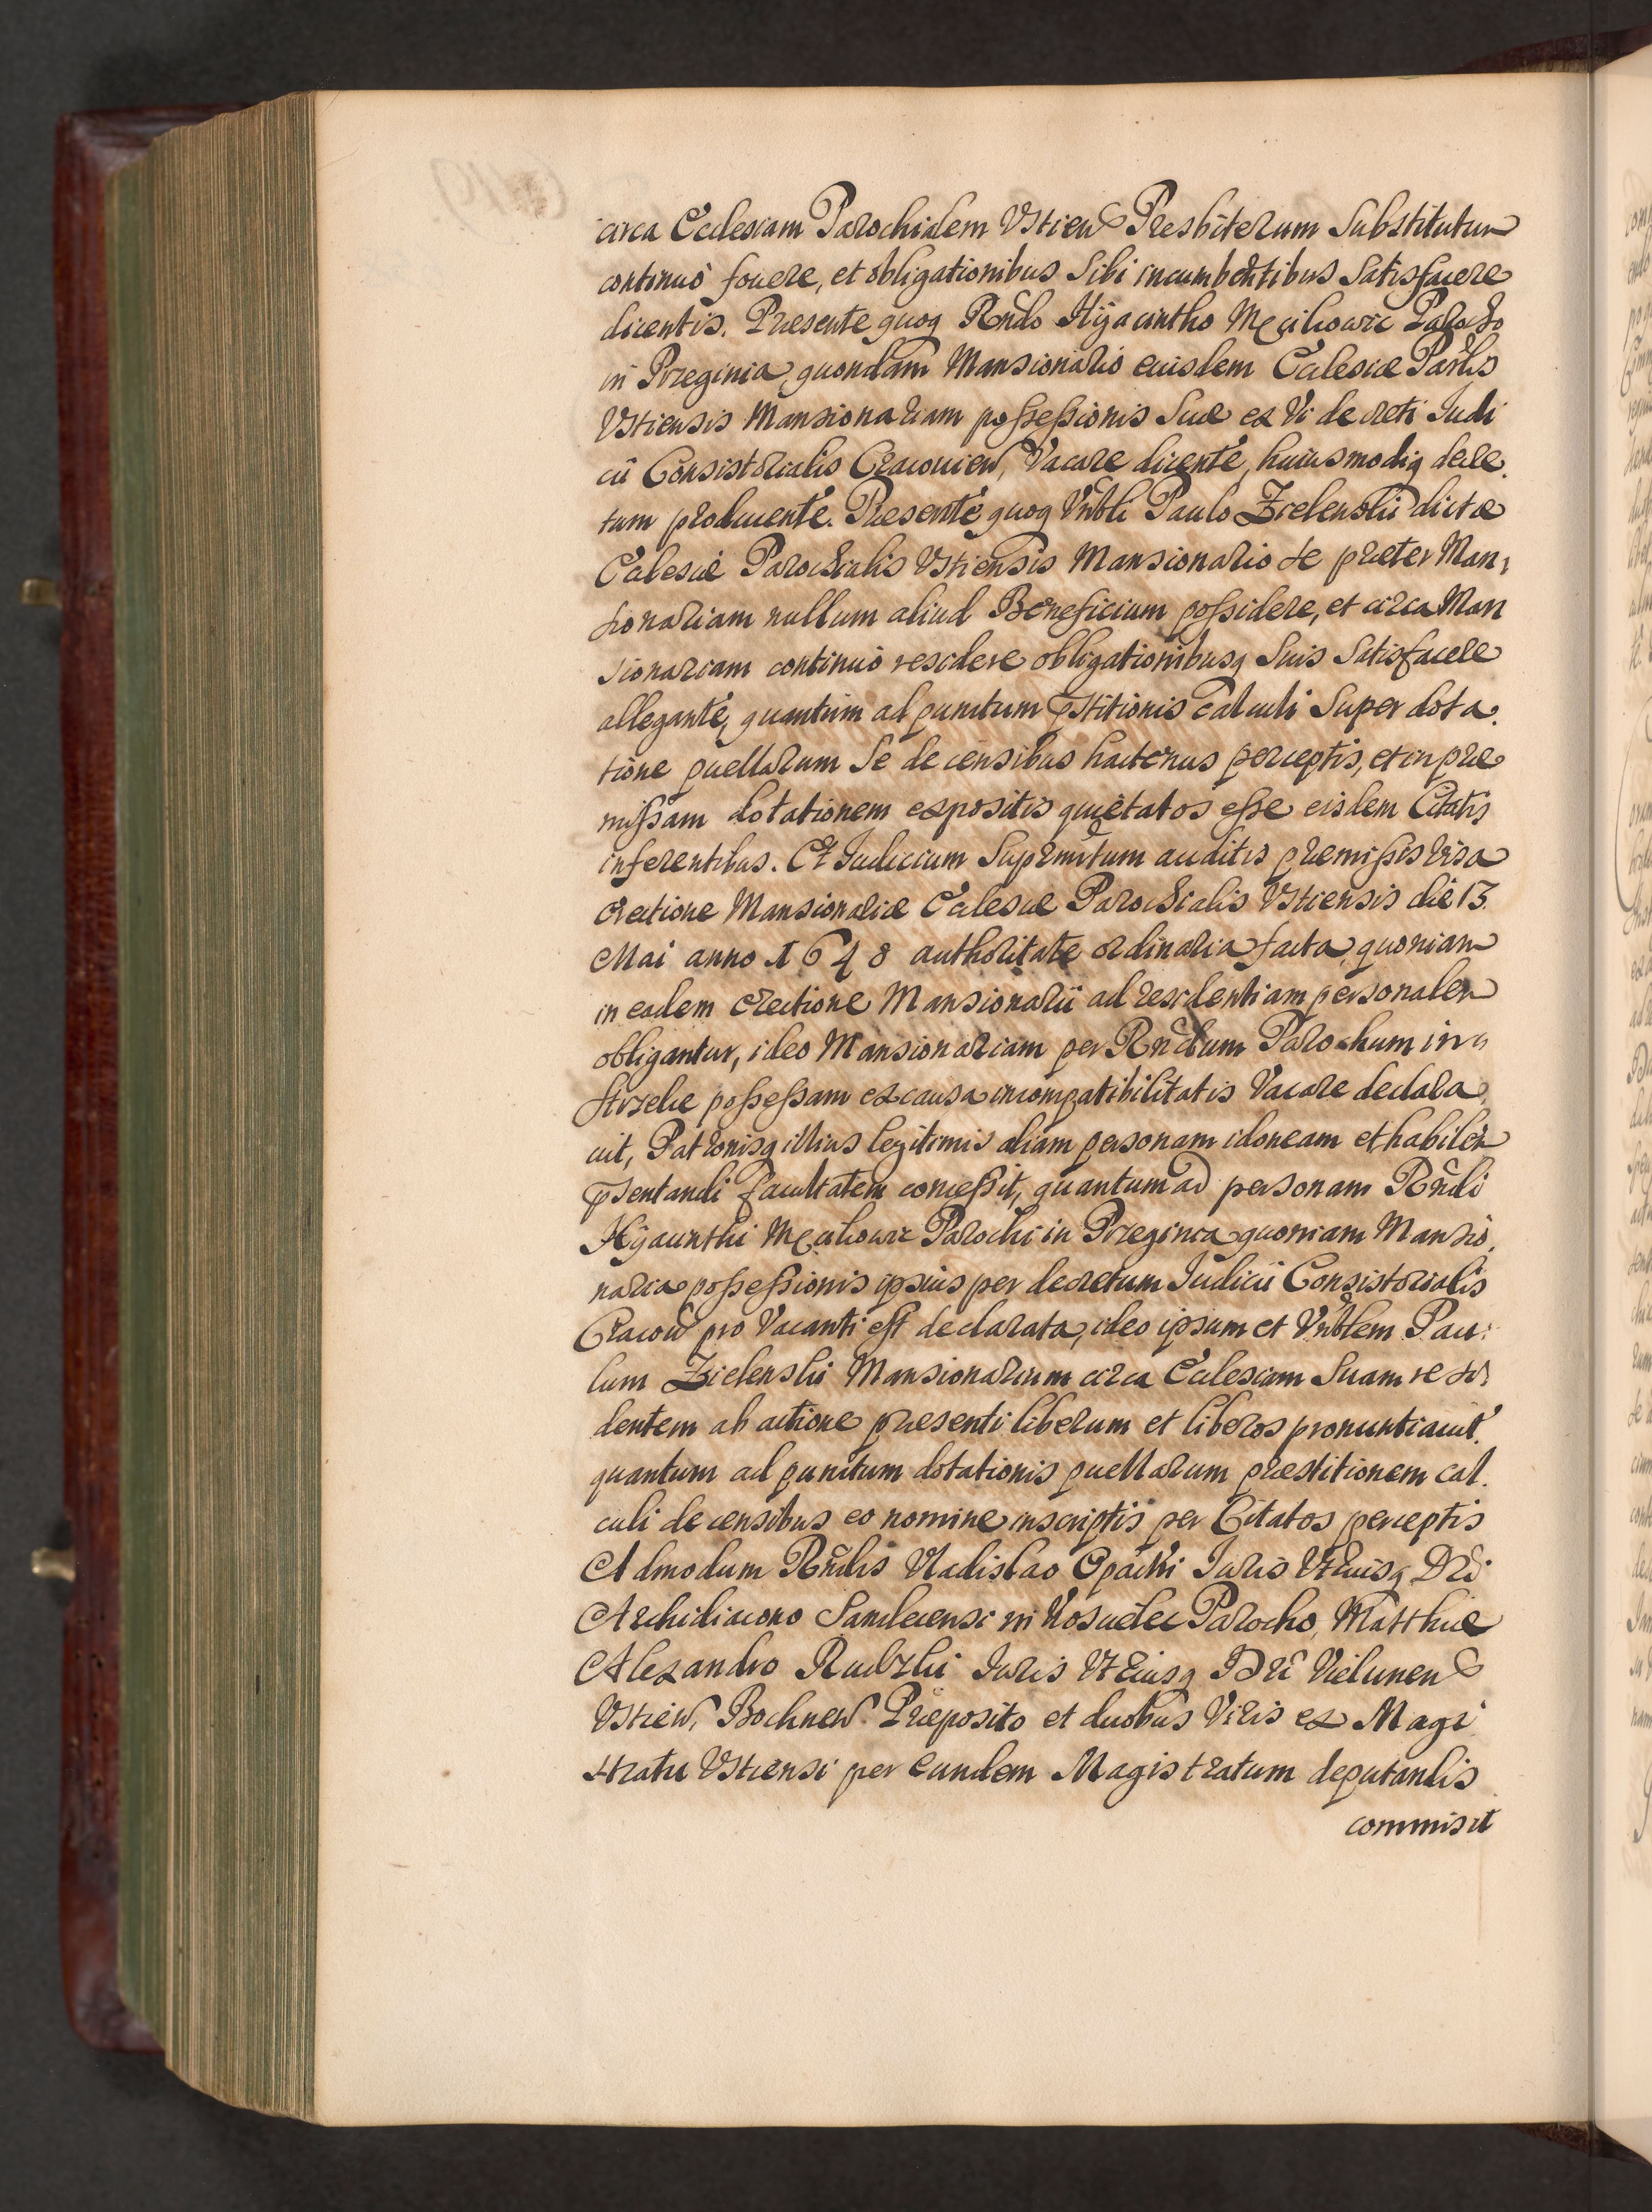 circa Ecclesiam Parochialem Vstien Presbiterum Substitutum
continuò fouere, et obligationibus Sibi incumbentibus Satisfacere
dicentis. Presente quoq Rndo Hÿacintho Parocho
in Przeginia, quondam Mansionario eiusdem Ecclesiæ Parlis
Vstiensis Mansionariam possessionis Suæ ex Vi decreti Judi
cii Consistorialis Cracouien, Vacare dicente, huiusmodiq decre
tum producente. Presente quoq Vnbli Paulo Zielenskii dictæ
Ecclesiæ Parochialis Vstiensis Mansionario se præter Man
sionariam nullum aliud Beneficium possidere, et circa Man
sionariam continuò residere obligationibusq Suis Satisfacere
allegante, quantum ad punctum pstitionis calculi Super dota
tione puellarum Se de censibus hactenus perceptis, et in præ
missam dotationem expositis quietatos esse eisdem Citatis
inferentibus. Et Iudicium Suprmtum auditis premissis visa
erectione Mansionariæ Ecclesiæ Parochialis Vstiensis die 13
Mai anno 1648 authoritate ordinaria facta, quoniam
in eadem erectione Mansionarii ad residentiam personalem
obligantur, ideo Mansionariam per Rndum Parochum in
Strzelce possessam ex causa incompatibilitatis Vacare declara
uit, Patronisq illius legitimis aliam personam idoneam et habilem
psentandi facultatem concessit, quantum ad personam Rndi
Hÿacinthi Parochi in Przeginia quoniam Mansio
naria possessionis ipsius per decretum Iudicii Consistorialis
Cracou pro Vacanti est declarata, ideo ipsum et Vnblem Pau
lum Zielenskii Mansionarium circa Ecclesiam Suam resi
dentem ab actione presenti liberum et liberos pronuntiauit.
quantum ad punctum dotationis puellarum præstitionem cal
culi de censibus eo nomine inscriptis per Citatos perceptis
Admodum Rndis Vladislao Opacki Iuris Vtriusq Dri
Archidiacono Sandecensi in Parocho, Matthiæ
Alexandro Rudzki Iuris Vtriusq Dri Vielunen
Vstien, Bochnen Præposito et duobus Viris ex Magi
stratu Vstiensi per eundem Magistratum deputandis
commisit